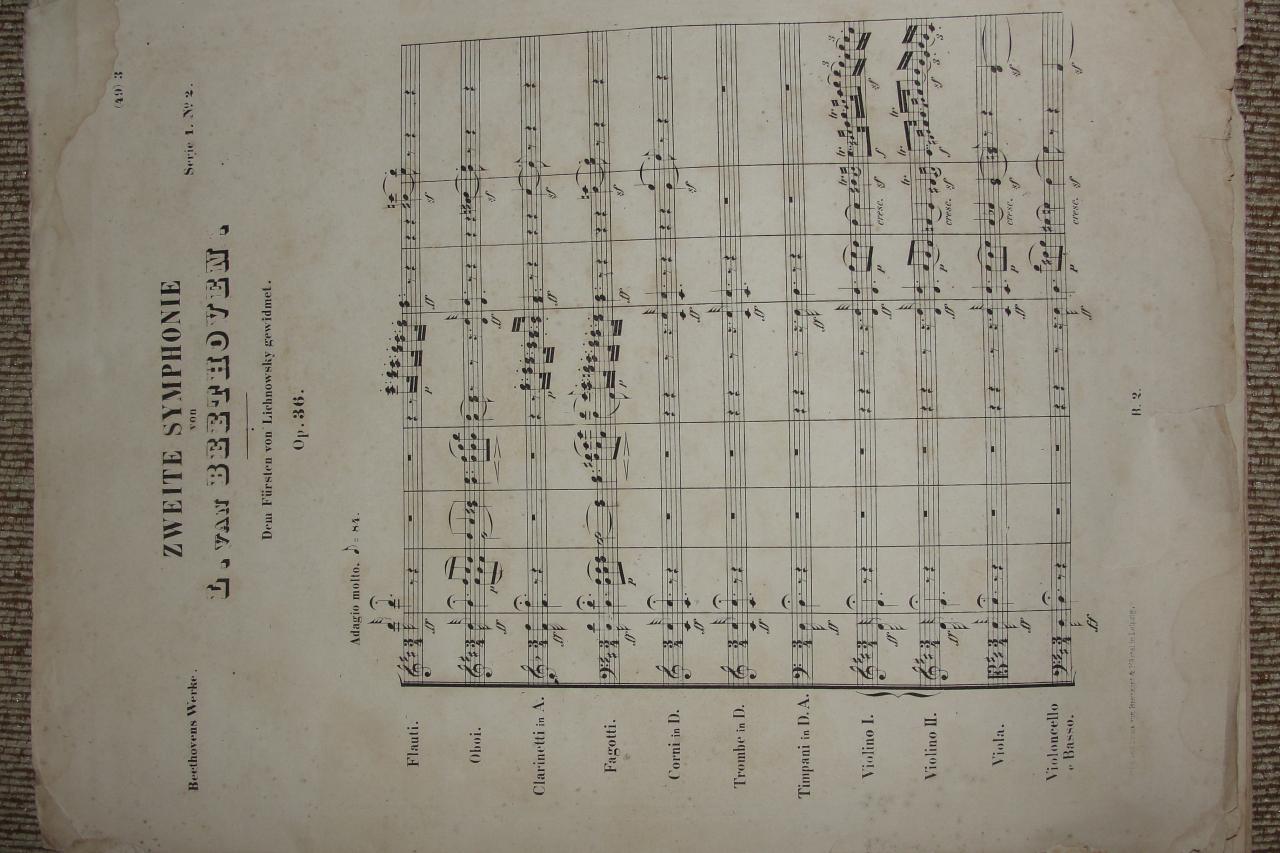 (49) 3
Beethovens Werke.
ZWEITE SYMPHONIE
Serie 1. No 2.
von
L. VAN BEETHOVEN.
Dem Fürsten von Lichnowsky gewidmet.
Op. 36.
Adagio molto. ♪ = 84.
Flauti.
Oboi.
Clarinetti in A.
Fagotti.
Corni in D.
Trombe in D.
Timpani in D.A.
Violino I.
Violino II.
Viola.
Violoncello
e Basso.
cresc.
cresc.
cresc.
cresc.
B. 2.